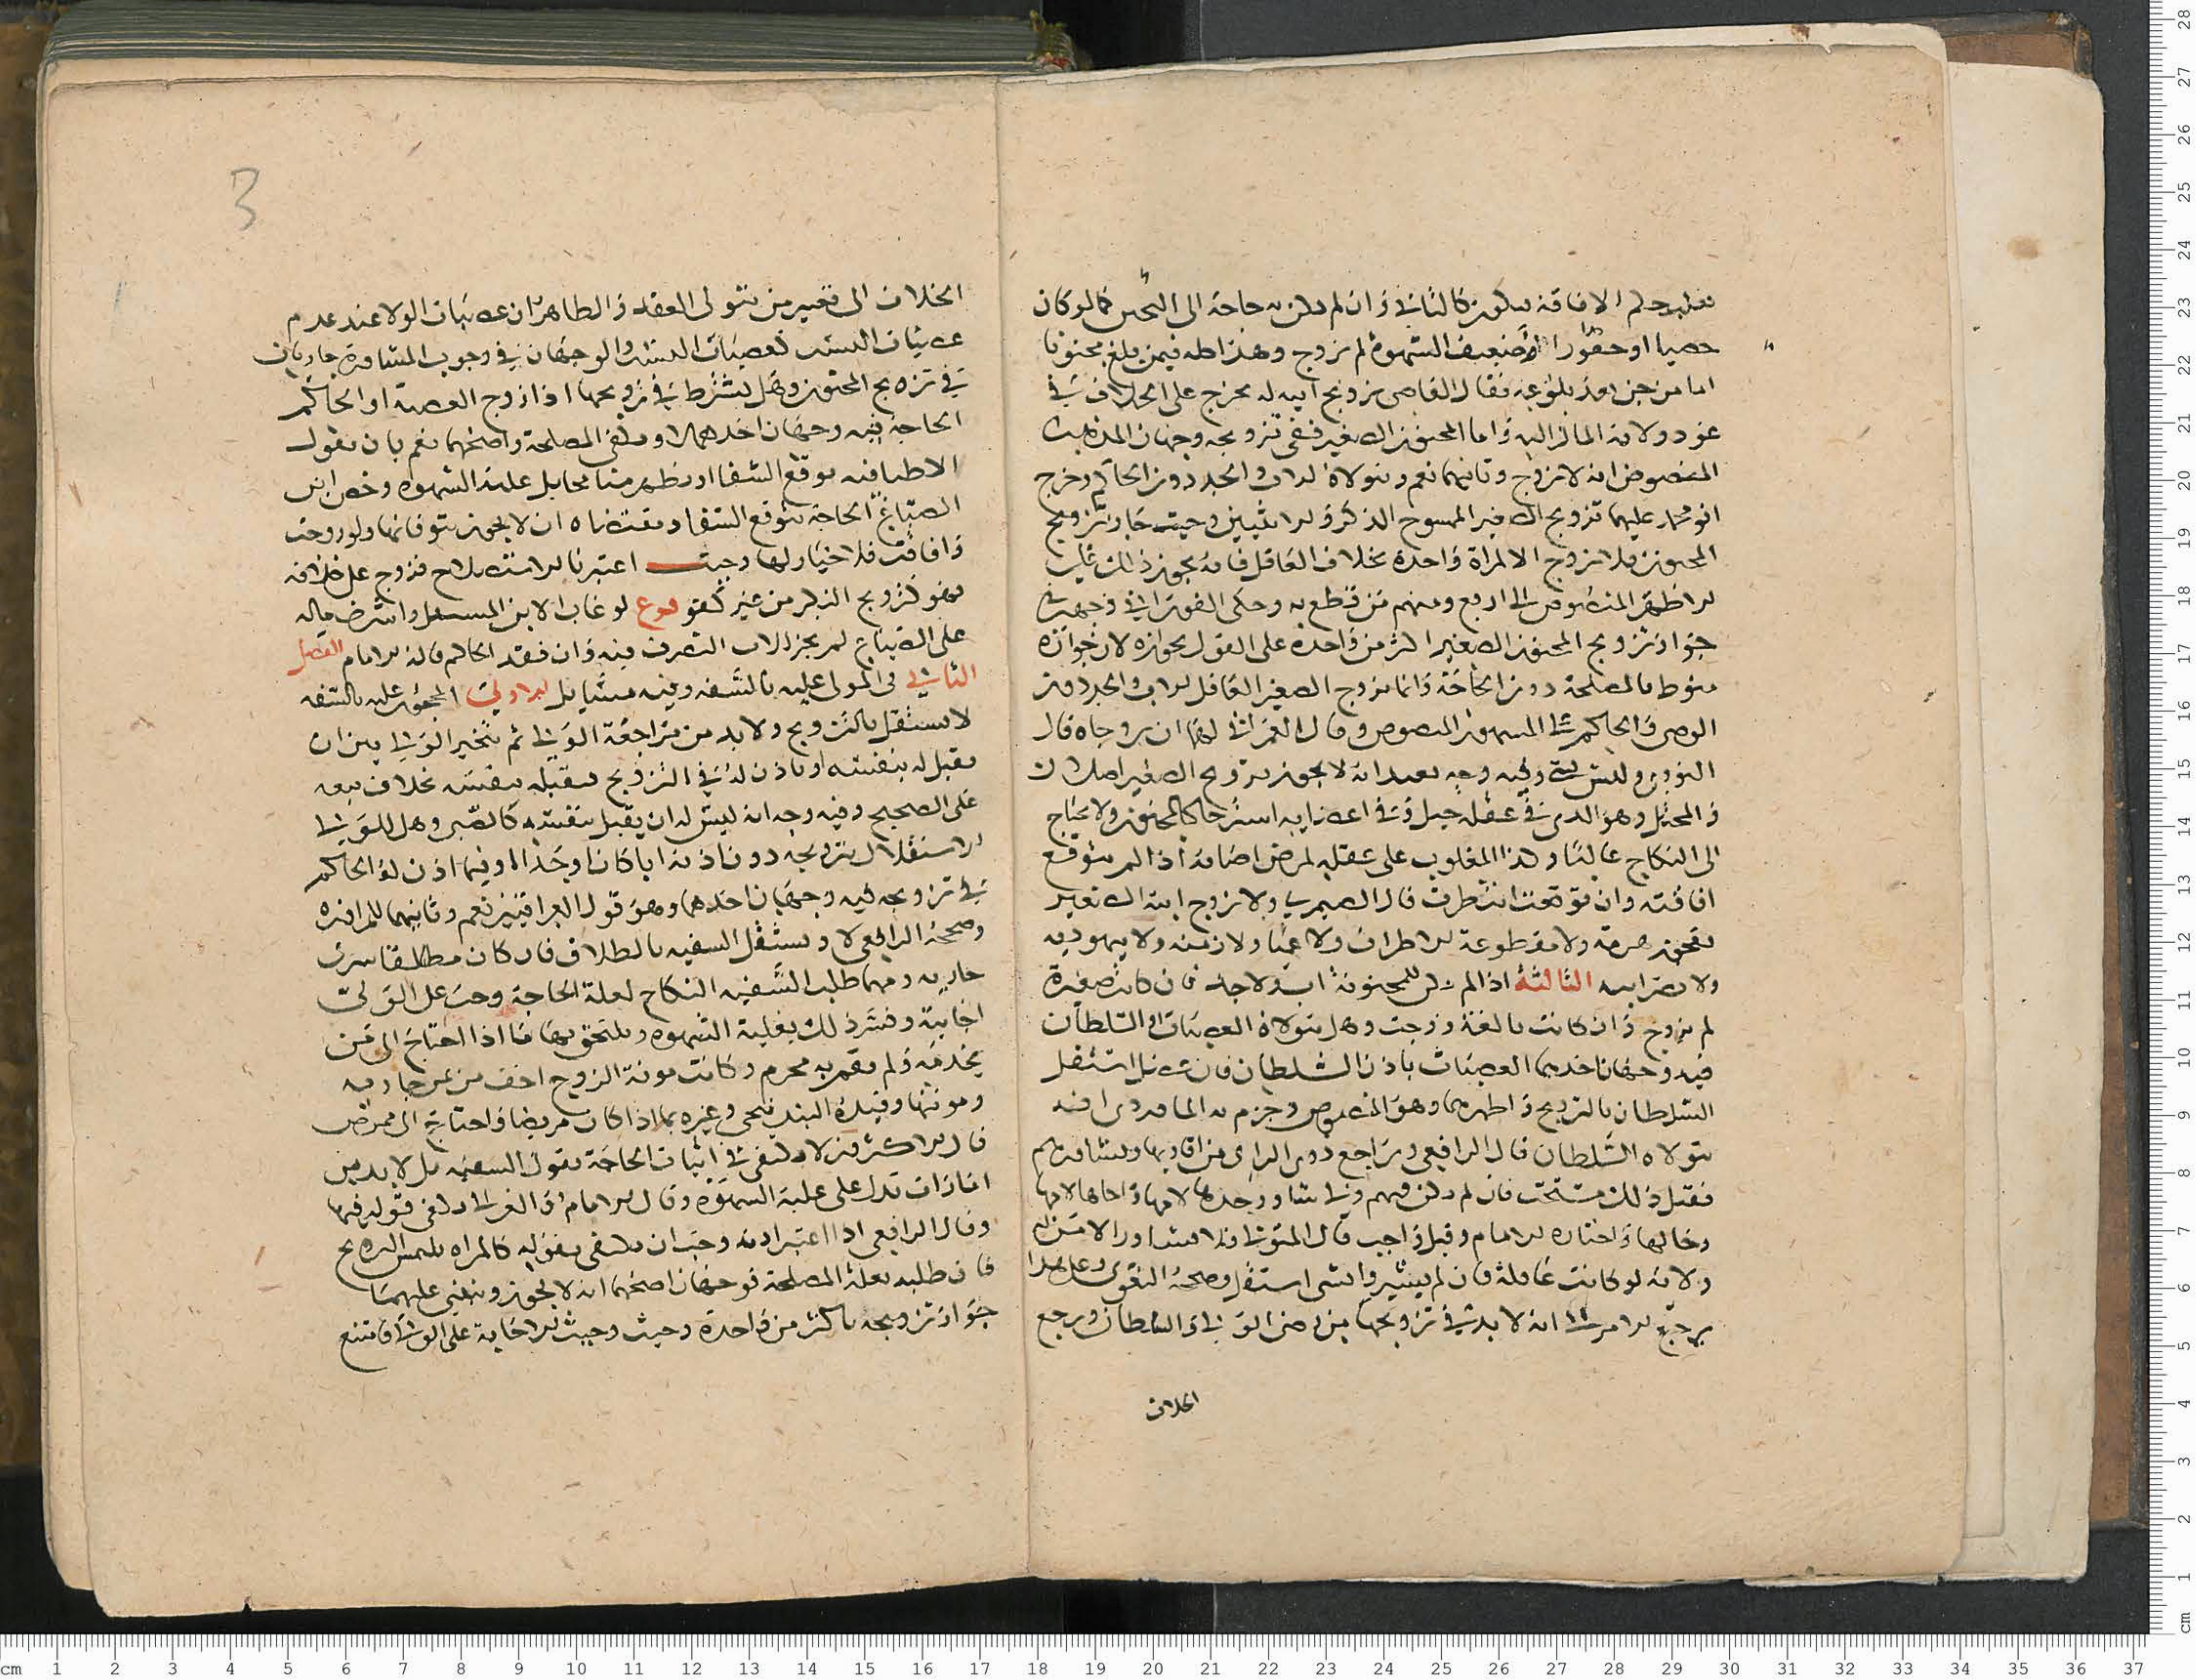 فيغلب حكم الافاقة فيكون كالثاني وان لم يكن به حاجة الى النكاح كما لو كان
خصيا او حصورا او ضعيف الشهوة لم يزوج وهذا كله فيمن بلغ مجنونا
اما من جن بعد بلوغه فقال القاضي تزويج ابيه له يخرج على الخلاف في
عود ولاية المال اليه واما المجنون الصغير ففي تزويجه وجهان المذهب
المنصوص انه لا يزوج وثانيهما نعم ويتولاه الاب والجد دون الحاكم وخرج
ابو محمد عليهما تزويج الصغير الممسوح الذكر والانثيين وحيث جاز تزويج
المجنون فلا يزوج الا امراة واحدة بخلاف العاقل فانه يجوز ذلك على
الاظهر المنصوص الى اربع ومنهم من قطع به وحكى الفوراني وجهين في
جواز تزويج المجنون الصغير اكثر من واحدة على القول بجوازه لان جوازه
منوط بالمصلحة دون الحاجة وانما يزوج الصغير العاقل الاب والجد دون
الوصي والحاكم على المشهور المنصوص وقال الغزالي لهما ان يزوجاه قال
النووي وليس بشيء وفيه وجه بعيد انه لا يجوز تزويج الصغير اصلا
والمخبل وهو الذي في عقله خبل وفي اعضايه استرخا كالمجنون ولا يحتاج
الى النكاح غالبا وكذا المغلوب على عقله لمرض اصابه اذا لم يتوقع
افاقته وان توقعت انتظرت قال الصيمري ولا يزوج ابنه الصغير
بعجوز هرمة ولا مقطوعة الاطراف ولا عميا ولا زمنة ولا يهودية
ولا نصرانية الثالثة اذا لم يكن للمجنونة اب ولا جد فان كانت صغيرة
لم تزوج وان كانت بالغة زوجت وهل يتولاه العصبات او السلطان
فيه وجهان احدهما العصبات باذن السلطان فان عضل استقل
السلطان بالتزويج واظهرهما وهو المنصوص وجزم به الماوردي انه
يتولاه السلطان قال الرافعي ويراجع ذوي الراي من اقاربها ويشاورهم
فقيل ذلك مستحب فان لم يكن فيهم ولي شاور جدها لامها واخاها لامها
وخالها واختاره الامام وقيل واجب قال المتولي فلا يشاور الا من له
ولاية لو كانت عاقلة فان لم يشيروا بشي استقل وصححه البغوي وعلى هذا
يرجع الامر الى انه لا بد في تزويجها من رضى الولي والسلطان ويرجع
الخلاف
3
الخلاف الى تعيين من يتولى العقد والظاهر ان عصبات الولا عند عدم
عصبات النسب كعصبات النسب والوجهان في وجوب المشاورة جاريان
في تزويج المجنون وهل يشترط في تزويجها اذا زوج العصبة او الحاكم
الحاجة فيه وجهان احدهما لا ويكفي المصلحة واصحهما نعم بان يقول
الاطبا فيه توقع الشفا او يظهر منها مخايل غلبة الشهوة وخص ابن
الصباغ الحاجة بتوقع الشفا ومقتضاه ان لا يجوز توقانها ولو زوجت
وافاقت فلا خيار لها وحيث اعتبرنا الاستصلاح فزوج على خلافه
فهو كتزويج البكر من غير كفو فرع لو غاب الابن المستقل واشرف ماله
على الضياع لم يجز للاب التصرف فيه وان فقد الحاكم قاله الامام الفصل
الثاني في المولى عليه بالسفه وفيه مسايل الاولى المحجور عليه بالسفه
لا يستقل بالتزويج ولا بد من مراجعة الولي ثم يتخير الولي بين ان
يقبل له بنفسه او ياذن له في التزويج فيقبله بنفسه بخلاف بيعه
على الصحيح وفيه وجه انه ليس له ان يقبل بنفسه كالصبي وهل للولي
الاستقلال بتزويجه دون اذنه ابا كان او جدا او فيما اذن له الحاكم
في تزويجه فيه وجهان احدهما وهو قول العراقيين نعم وثانيهما للمراوزة
وصححه الرافعي لا ويستقل السفيه بالطلاق فان كان مطلاقا سري
جارية ومهما طلب السفيه النكاح لعلة الحاجة وجب على الولي
اجابته وفسر ذلك بغلبة الشهوة ويلتحق بها ما اذا احتاج الى من
يخدمه ولم تقم به محرم وكانت مونة الزوج اخف من ثمن جارية
ومونتها وقيده البندنيجي وغيره بما اذا كان مريضا واحتاج الى ممرض
قال الاكثرون لا يكتفى في اثبات الحاجة بقول السفيه بل لا بد من
امارات تدل على غلبة الشهوة وقال الامام والغزالي يكفي قوله فيها
وقال الرافعي اذا اعتبر اذنه وجب ان يكتفى بقوله كالمراة تلتمس التزويج
فان طلبه بعلة المصلحة فوجهان اصحهما انه لا يجوز وينبني عليهما
جواز تزويجه باكثر من واحدة وحيث وجبت الاجابة على الولي فامتنع